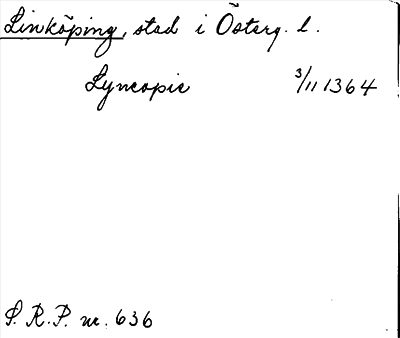 Linköping, stad i Österg. l.
Lyncopie 3/11 1364
S. R. P. nr. 636